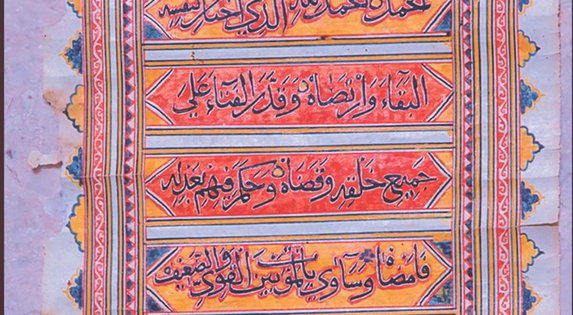 الذي اختار لنفسه
البقاء وارتضاه وقدّر الفناء علي
جميع خلقه وقضاه وحكم فيهم بعدله
فامضاه وساوي بالموت بين القوي والضعيف